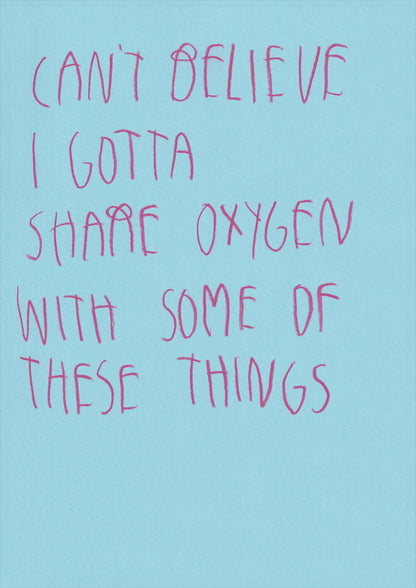 CAN'T BELIEVE
I GOTTA
SHARE OXYGEN
WITH SOME OF
THESE THINGS